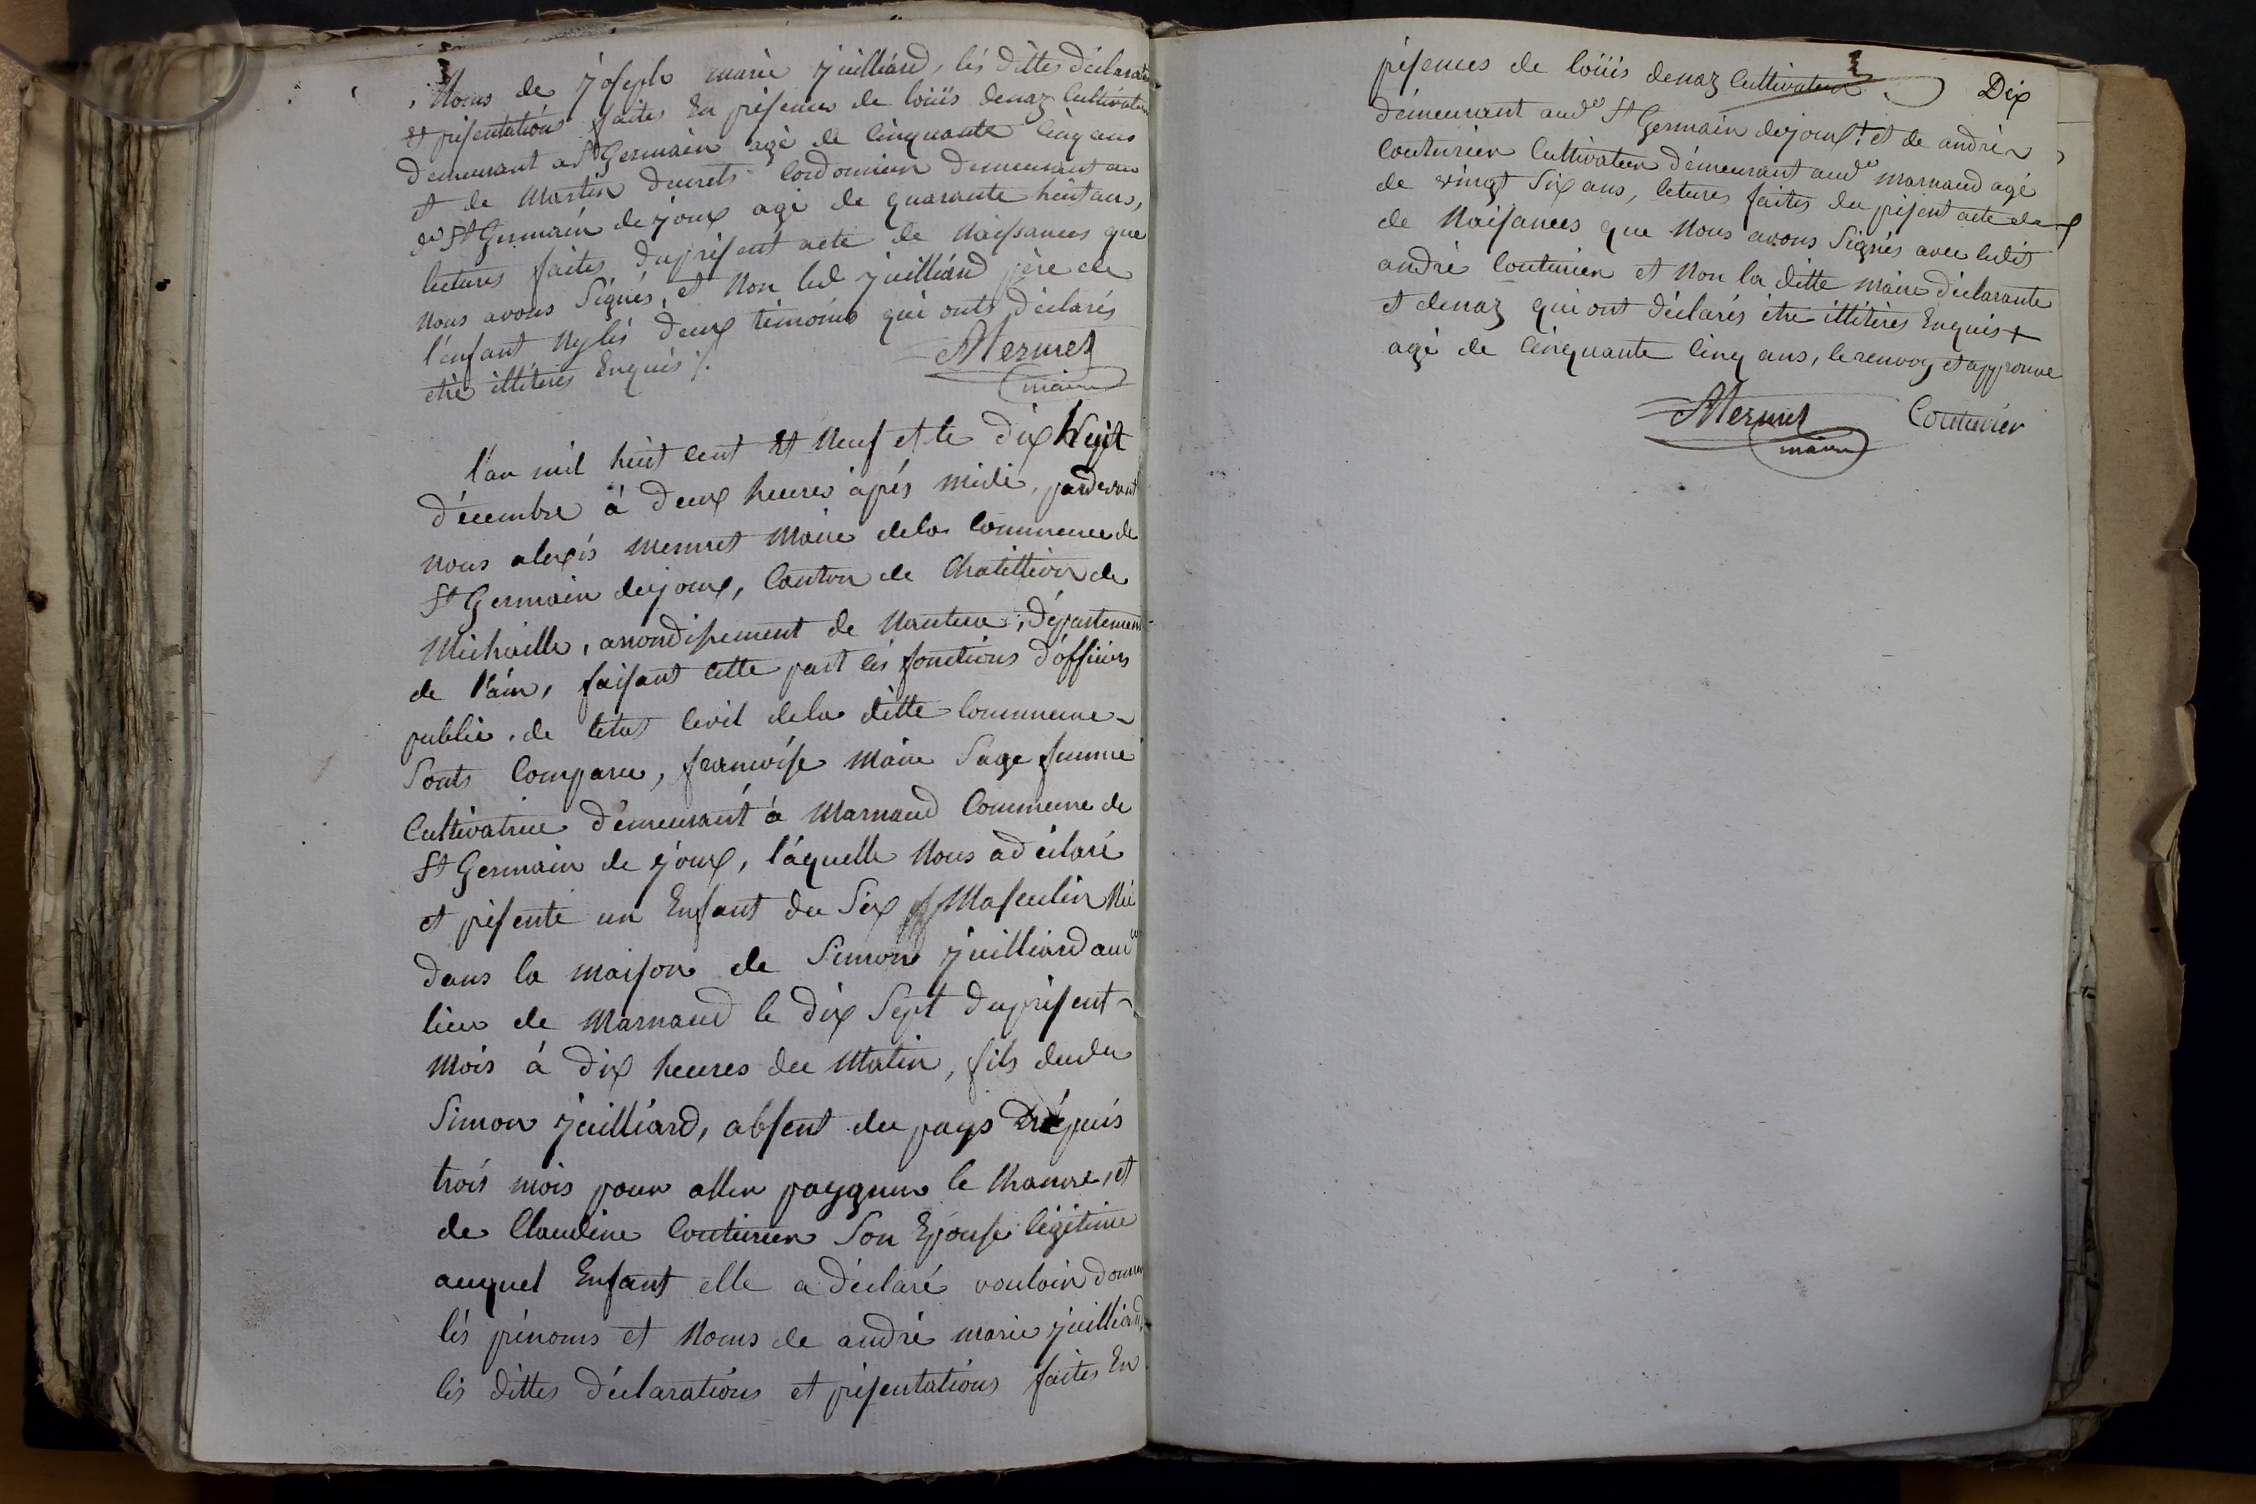 Noms de joseph marie juilliard, lés dittes déclaration
et présentations faites En présence de loüis denaz Cultivateur
demeurant a St Germain agé de Cinquante Cinq ans
et de Martin ducrets Cordonnier demeurant au
dt St Germain de joux agé de quarante huit ans,
lectures faites du présent acte de Naissances que
nous avons Signés, et Non led juilliard père de
l'enfant Ny lés deux témoins qui onts déclarés
etre illiterés Enquis ./.
Mermet
maire
l'an mil huit Cent et Neuf et le dix huit
décembre à deux heures aprés midi, pardevant
nous alexis mermet Maire dela Commune de
St Germain dejoux, Canton de Chatillion de
Michaille, arrondissement de Nantua, Département
de l'ain, faisant cette part les fonctions d'officiers
public de letat Civil dela ditte Commune
Sonts Comparue, francoise Maire Sage femme
Cultivatrice démeurant à Marnaud Commune de
St Germain de joux, láquelle Nous a déclaré
et présenté un Enfant du Sex Masculin Né
dans la maison de Simon juilliard aud
lieu de Marnaud le dix Sept du présent
mois à dix heures du Matin, fils dudu
Simon juilliard, absent du pays Dépuis
trois mois pour aller paygner le Chanvre, et
de Claudine Couturier Son Epouse légitime
auquel Enfant elle a déclaré vouloir donner
lés prénoms et Noms de andré marie juilliard,
lés dittes déclarations et présentations faites En
présences de loüis denaz Cultivateur
Dix
démeurant aud St Germain dejoux + et de andré
Couturier Cultivateur démeurant aud marnaud agé
de vingt Six ans, letures faites du présent acte de
de Naisances que Nous avons Signés avec ledit
andré Couturier et Non la ditte Maire déclarante
et denaz qui ont déclarés étre illitérés Enquis +
agé de Cinquante Cinq ans, le renvoy et approuvé
Mermet
Couturier
maire